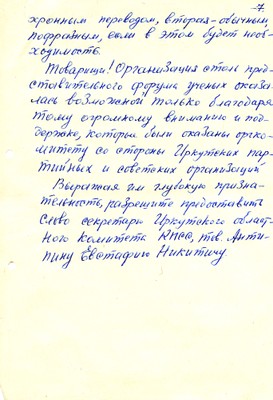 7
хронным переводом, вторая - обычным
пофразным, если в этом будет необ-
ходимость.
Товарищи! Организация столь пред-
ставительного форума ученых оказа-
лась возможной только благодаря
тому огромному вниманию и под-
держке, которые были оказаны орг-
комитету со стороны Иркутских пар-
тийных и советских организаций
Выражая им глубокую призна-
тельность, разрешите предоставить
слово секретарю Иркутского област-
ного комитета КПСС, тов. Анти-
пину Евстафию Никитичу.